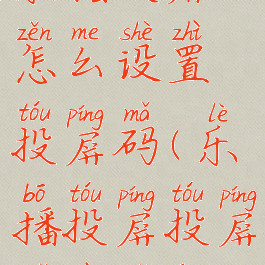 zěn me shè zhì
怎么设置
tóu píng mǎ lè
投屏码(乐
bō tóu píng tóu píng
播投屏投屏